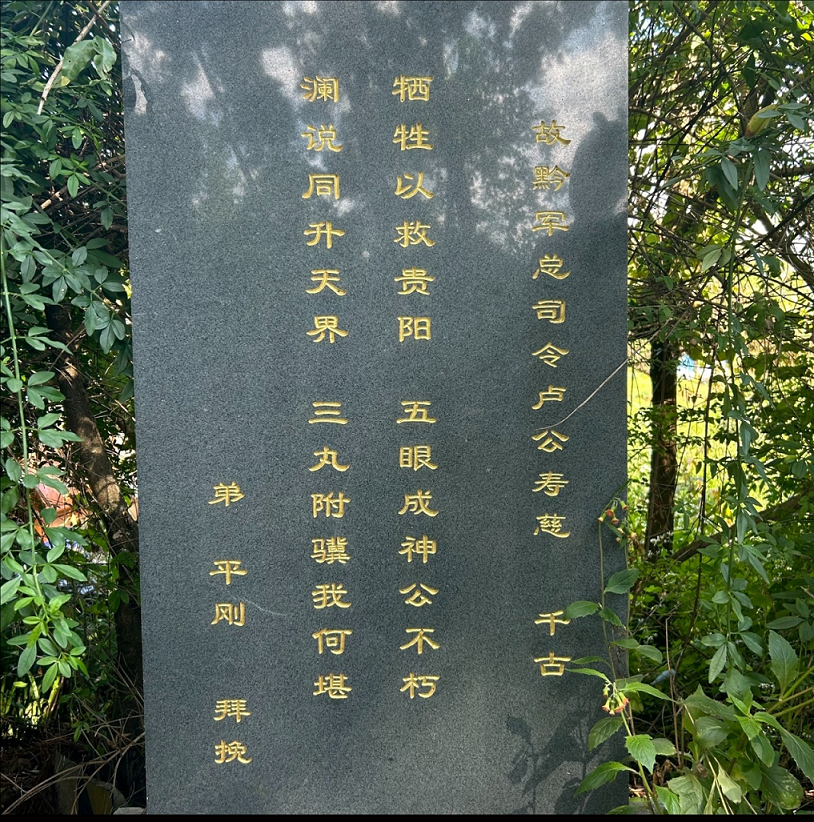 故黔军总司令卢公寿慈 千古
牺牲以救贵阳 五眼成神公不朽
澜说同升天界 三丸附骥我何堪
弟 平刚 拜挽